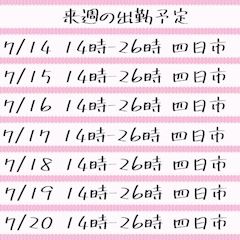 来週の出勤予定
7/14 14時-26時 四日市
7/15 14時-26時 四日市
7/16 14時-26時 四日市
7/17 14時-26時 四日市
7/18 14時-26時 四日市
7/19 14時-26時 四日市
7/20 14時-26時 四日市